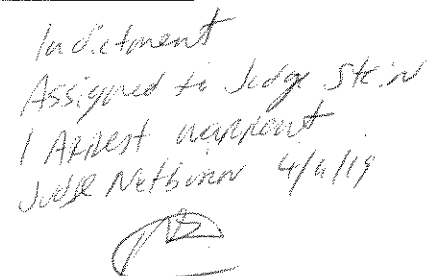 Indictment
Assigned to Judge Stein
1 Arrest warrant
Judge Netburn 4/4/19